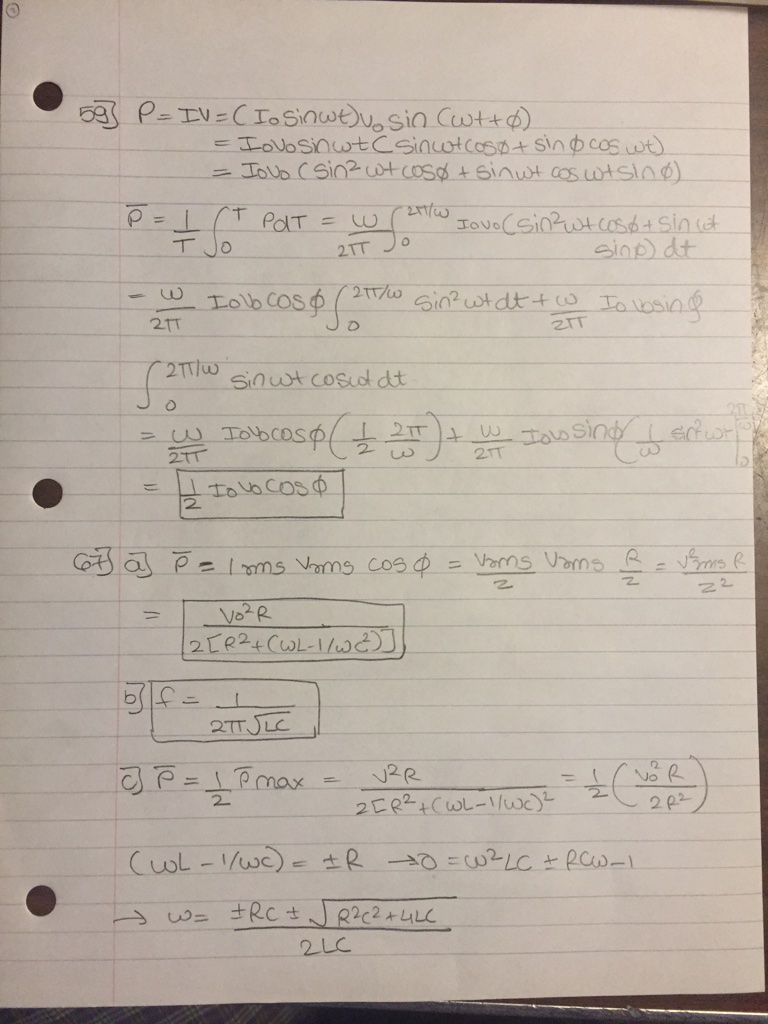 59] P = IV = (I₀ sinωt)V₀ sin (ωt + φ)
= I₀V₀ sinωt (sinωt cosφ + sinφ cos ωt)
= I₀V₀ (sin²ωt cosφ + sinωt cosωt sinφ)
P̄ = 1/T ∫₀ᵀ PdT = ω/2π ∫₀^(2π/ω) I₀V₀ (sin²ωt cosφ + sin ωt
sinφ) dt
= ω/2π I₀V₀ cosφ ∫₀^(2π/ω) sin²ωt dt + ω/2π I₀V₀ sinφ
∫₀^(2π/ω) sinωt cosωt dt
= ω/2π I₀V₀ cosφ (1/2 2π/ω) + ω/2π I₀V₀ sinφ (1/ω sin²ωt |₀^(2π/ω)
= 1/2 I₀V₀ cosφ
67] a] P̄ = Irms Vrms cos φ = Vrms/Z Vrms R/Z = V²rms R/Z²
= V₀²R / 2[R²+(ωL-1/ωC²)]
b] f = 1/2π√LC
c] P̄ = 1/2 P̄max = V²R / 2[R²+(ωL-1/ωC)² = 1/2 (V₀²R / 2R²)
(ωL - 1/ωC) = ±R → 0 = ω²LC ± RCω-1
→ ω = ±RC ± √R²C²+4LC / 2LC